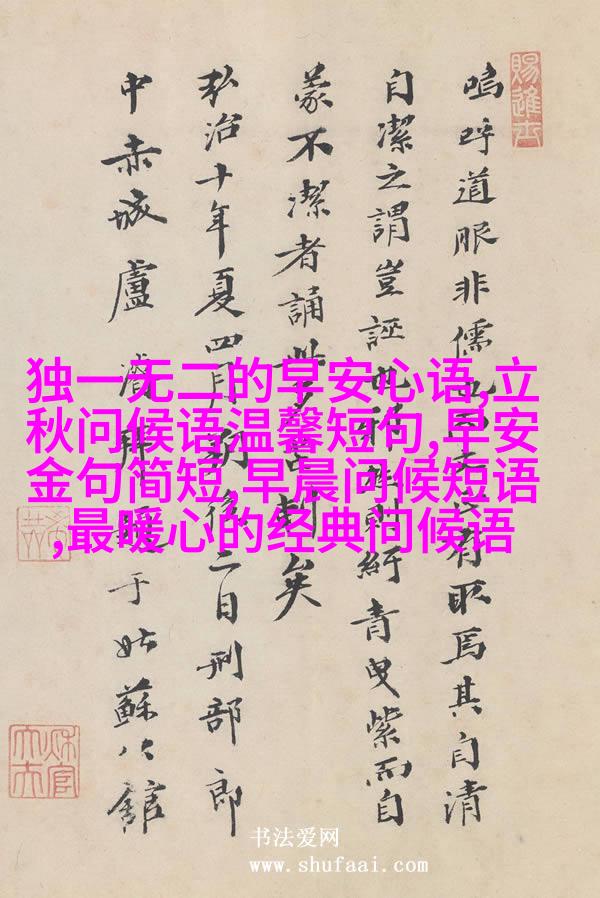 賜進士
嗚呼道眼非儒有取焉其自清
自潔之謂豈誣則紆青曳紫而自
蒙不潔者誦矣
弘治十年夏四月朔後二日刑部郎
中赤城盧濬于姑蘇公館
独一无二的早安心语,立
秋问候语温馨短句,早安
金句简短,早晨问候短语
,最暖心的经典问候语
书法爱网
www.shufaai.com